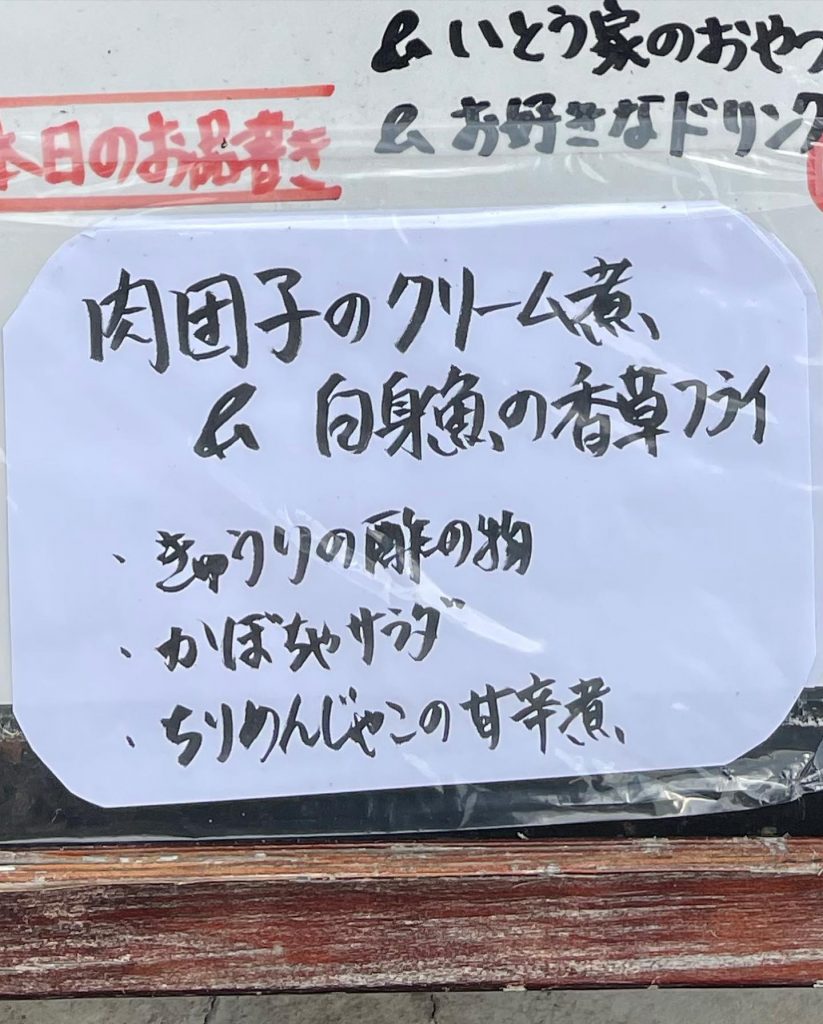 & いとう家のおやつ
& お好きなドリンク
本日のお品書き
肉団子のクリーム煮
& 白身魚の香草フライ
・きゅうりの酢の物
・かぼちゃサラダ
・ちりめんじゃこの甘辛煮